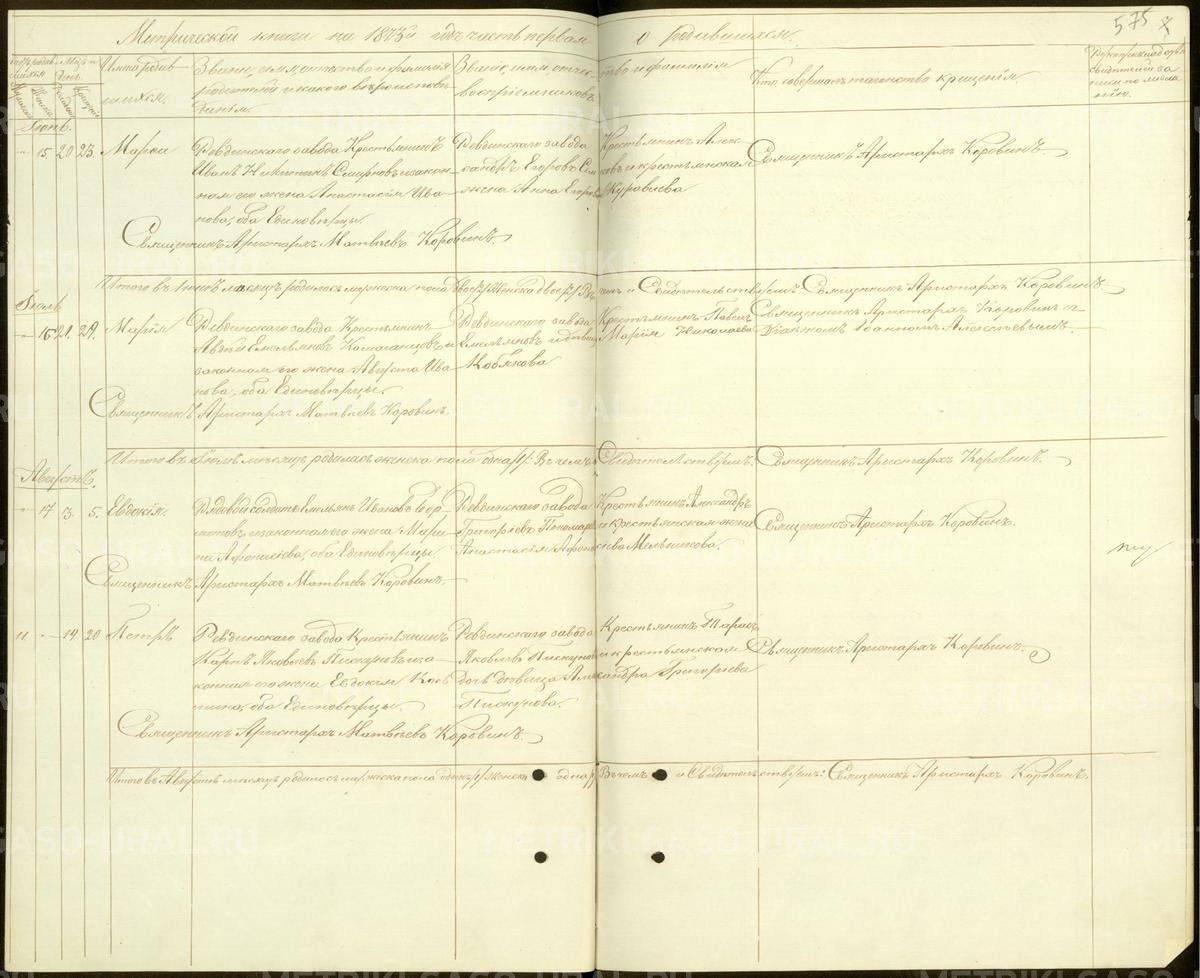 575
Метрической книги на 1873й годъ часть первая о родившихся.
Счетъ родившихся
Мѣсяцъ и день
Имена родившихся.
Званіе, имя, отчество и фамилія родителей и какого вѣроисповѣданія.
Званіе, имя, отчество и фамилія воспріемниковъ
Кто совершалъ таинство крещенія
Рукоприкладство свидѣтелей записи по желанію.
Іюнь.
15. 20 23. Марѳа
Ревдинскаго завода Крестьянинъ
Иванъ Никитинъ Смирновъ и закон-
ная его жена Анастасія Ива-
нова, оба Единовѣрцы.
Ревдинскаго завода Крестьянинъ Алек-
сандръ Егоровъ и крестьянская
жена Анна Журавлева
Священникъ Аристархъ Коровинъ
Священникъ Аристархъ Матвѣевъ Коровинъ.
Итого въ Іюнѣ мѣсяцѣ родилось мужеска пола двое женска двое Въ чемъ и Свидѣтельствуемъ: Священникъ Аристархъ Коровинъ
Іюль
16 21. 29. Марія
Ревдинскаго завода Крестьянинъ
Авдѣй Емельяновъ и
законная его жена Августа Ива-
нова, оба Единовѣрцы.
Ревдинскаго завода Крестьянинъ Павелъ
Емельяновъ и дѣвица Марія Николаева
Кобякова
Священникъ Аристархъ Коровинъ съ
Діакономъ Іоанномъ Алексѣевымъ.
Священникъ Аристархъ Матвѣевъ Коровинъ.
Итого въ Іюлѣ мѣсяцѣ родилось женска пола одна Въ чемъ Свидѣтельствуемъ: Священникъ Аристархъ Коровинъ.
Августъ.
17 3. 5. Евдокія.
Рядовой солдатъ Емельянъ Ивановъ
и законная его жена Мари-
на Афонасіева, оба Единовѣрцы
Ревдинскаго завода Крестьянинъ Александръ
Григорьевъ Пономаревъ и крестьянская жена
Анастасія Мельникова.
Священникъ Аристархъ Коровинъ.
Священникъ Аристархъ Матвѣевъ Коровинъ.
11 19 20 Петръ
Ревдинскаго завода Крестьянинъ
Карпъ Яковлевъ Пискуновъ и за-
конная его жена Евдокія
оба Единовѣрцы.
Ревдинскаго завода Крестьянинъ Тарасъ
Яковлевъ Пискуновъ и крестьянская
дочь дѣвица Александра Григорьева
Пискунова.
Священникъ Аристархъ Коровинъ.
Священникъ Аристархъ Матвѣевъ Коровинъ.
Итого въ Августѣ мѣсяцѣ родилось мужеска пола одинъ женска одна Въ чемъ и Свидѣтельствуемъ: Священникъ Аристархъ Коровинъ.
METRIKI.GASO-URAL.RU